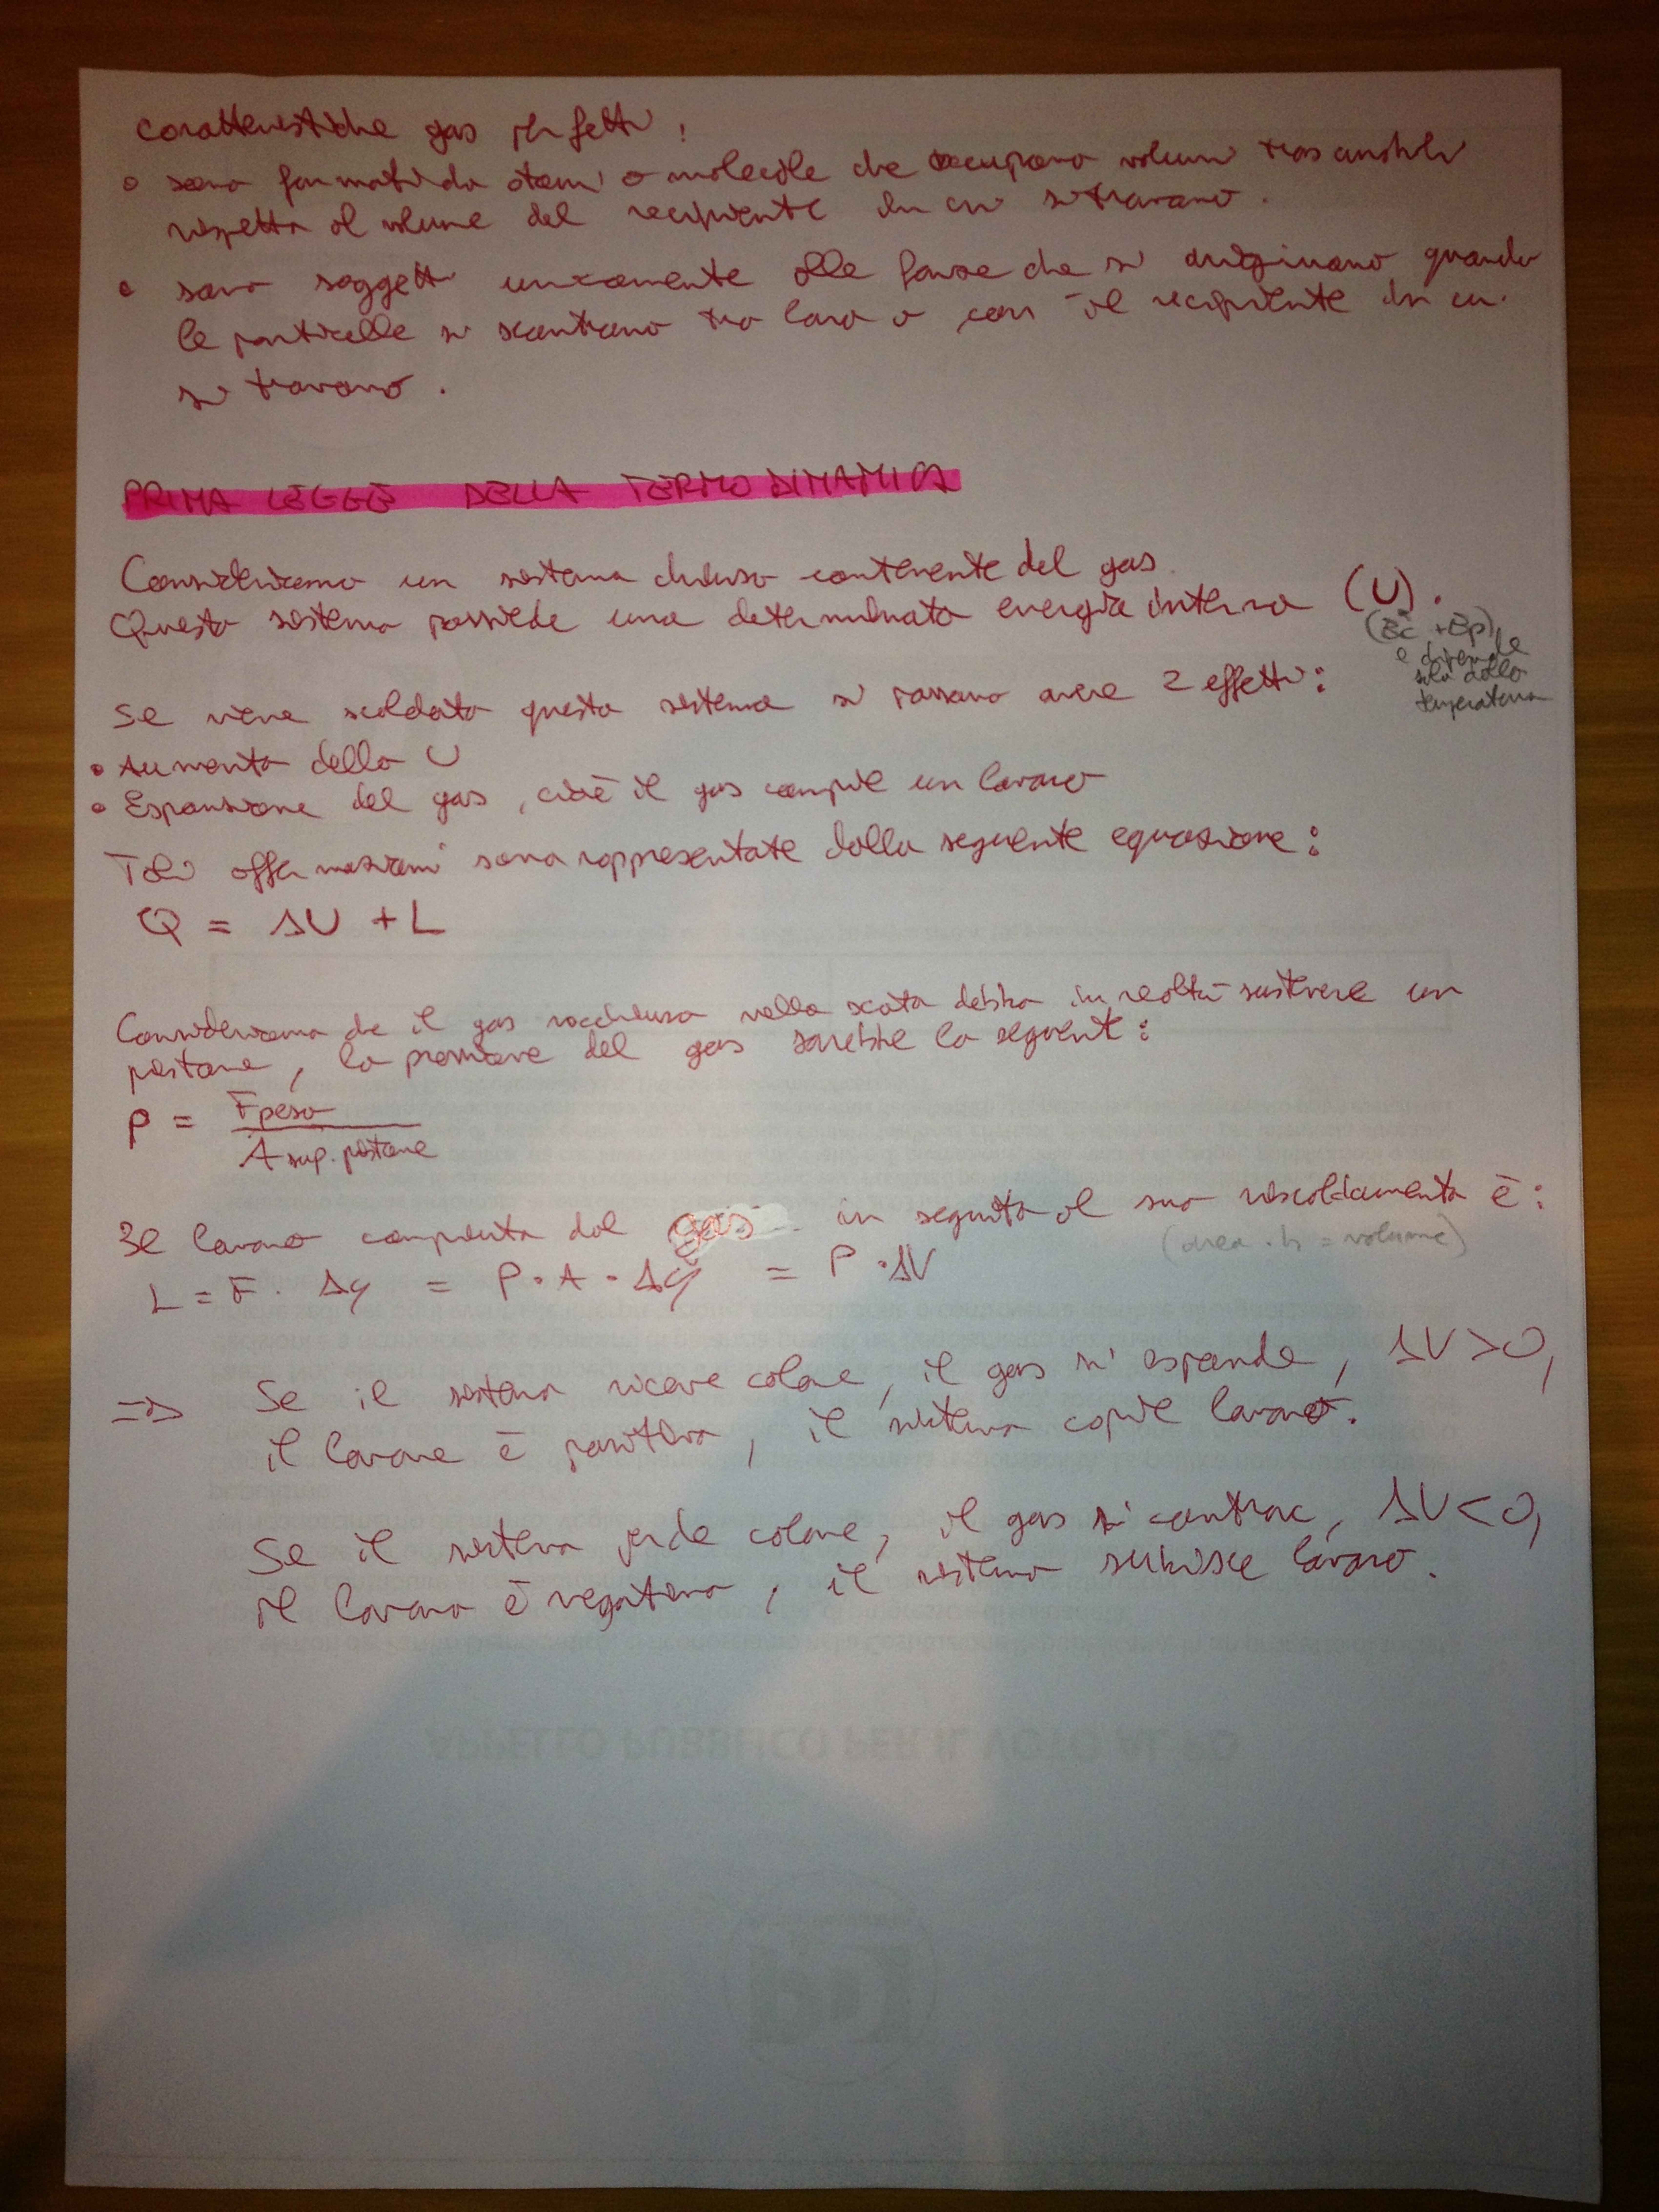 Caratteristiche gas perfetti:
• sono formati da atomi o molecole che occupano volumi trascurabili
rispetto al volume del recipiente in cui si trovano.
• sono soggetti unicamente alle forze che si originano quando
le particelle si scontrano tra loro o con il recipiente in cui
si trovano.
PRIMA LEGGE DELLA TERMODINAMICA
Consideriamo un sistema chiuso contenente del gas.
Questo sistema possiede una determinata energia interna (U).
(Ec + Ep)
e dipende
solo dalla
temperatura
Se viene scaldato questo sistema si possono avere 2 effetti:
• Aumento della U
• Espansione del gas, cioè il gas compie un lavoro
Tali affermazioni sono rappresentate dalla seguente equazione:
Q = ΔU + L
Consideriamo che il gas racchiuso nella scatola debba in realtà sostenere un
pistone, la pressione del gas sarebbe la seguente:
P = Fpeso / A sup. pistone
Il lavoro compiuto dal gas in seguito al suo riscaldamento è:
(area · h = volume)
L = F · Δy = P · A · Δy = P · ΔV
=> Se il sistema riceve calore, il gas si espande, ΔV>0,
il lavoro è positivo, il sistema copie lavoro.
Se il sistema perde calore, il gas si contrae, ΔV<0,
il lavoro è negativo, il sistema subisce lavoro.
APPELLO PUBBLICO PER IL VOTO AL PD